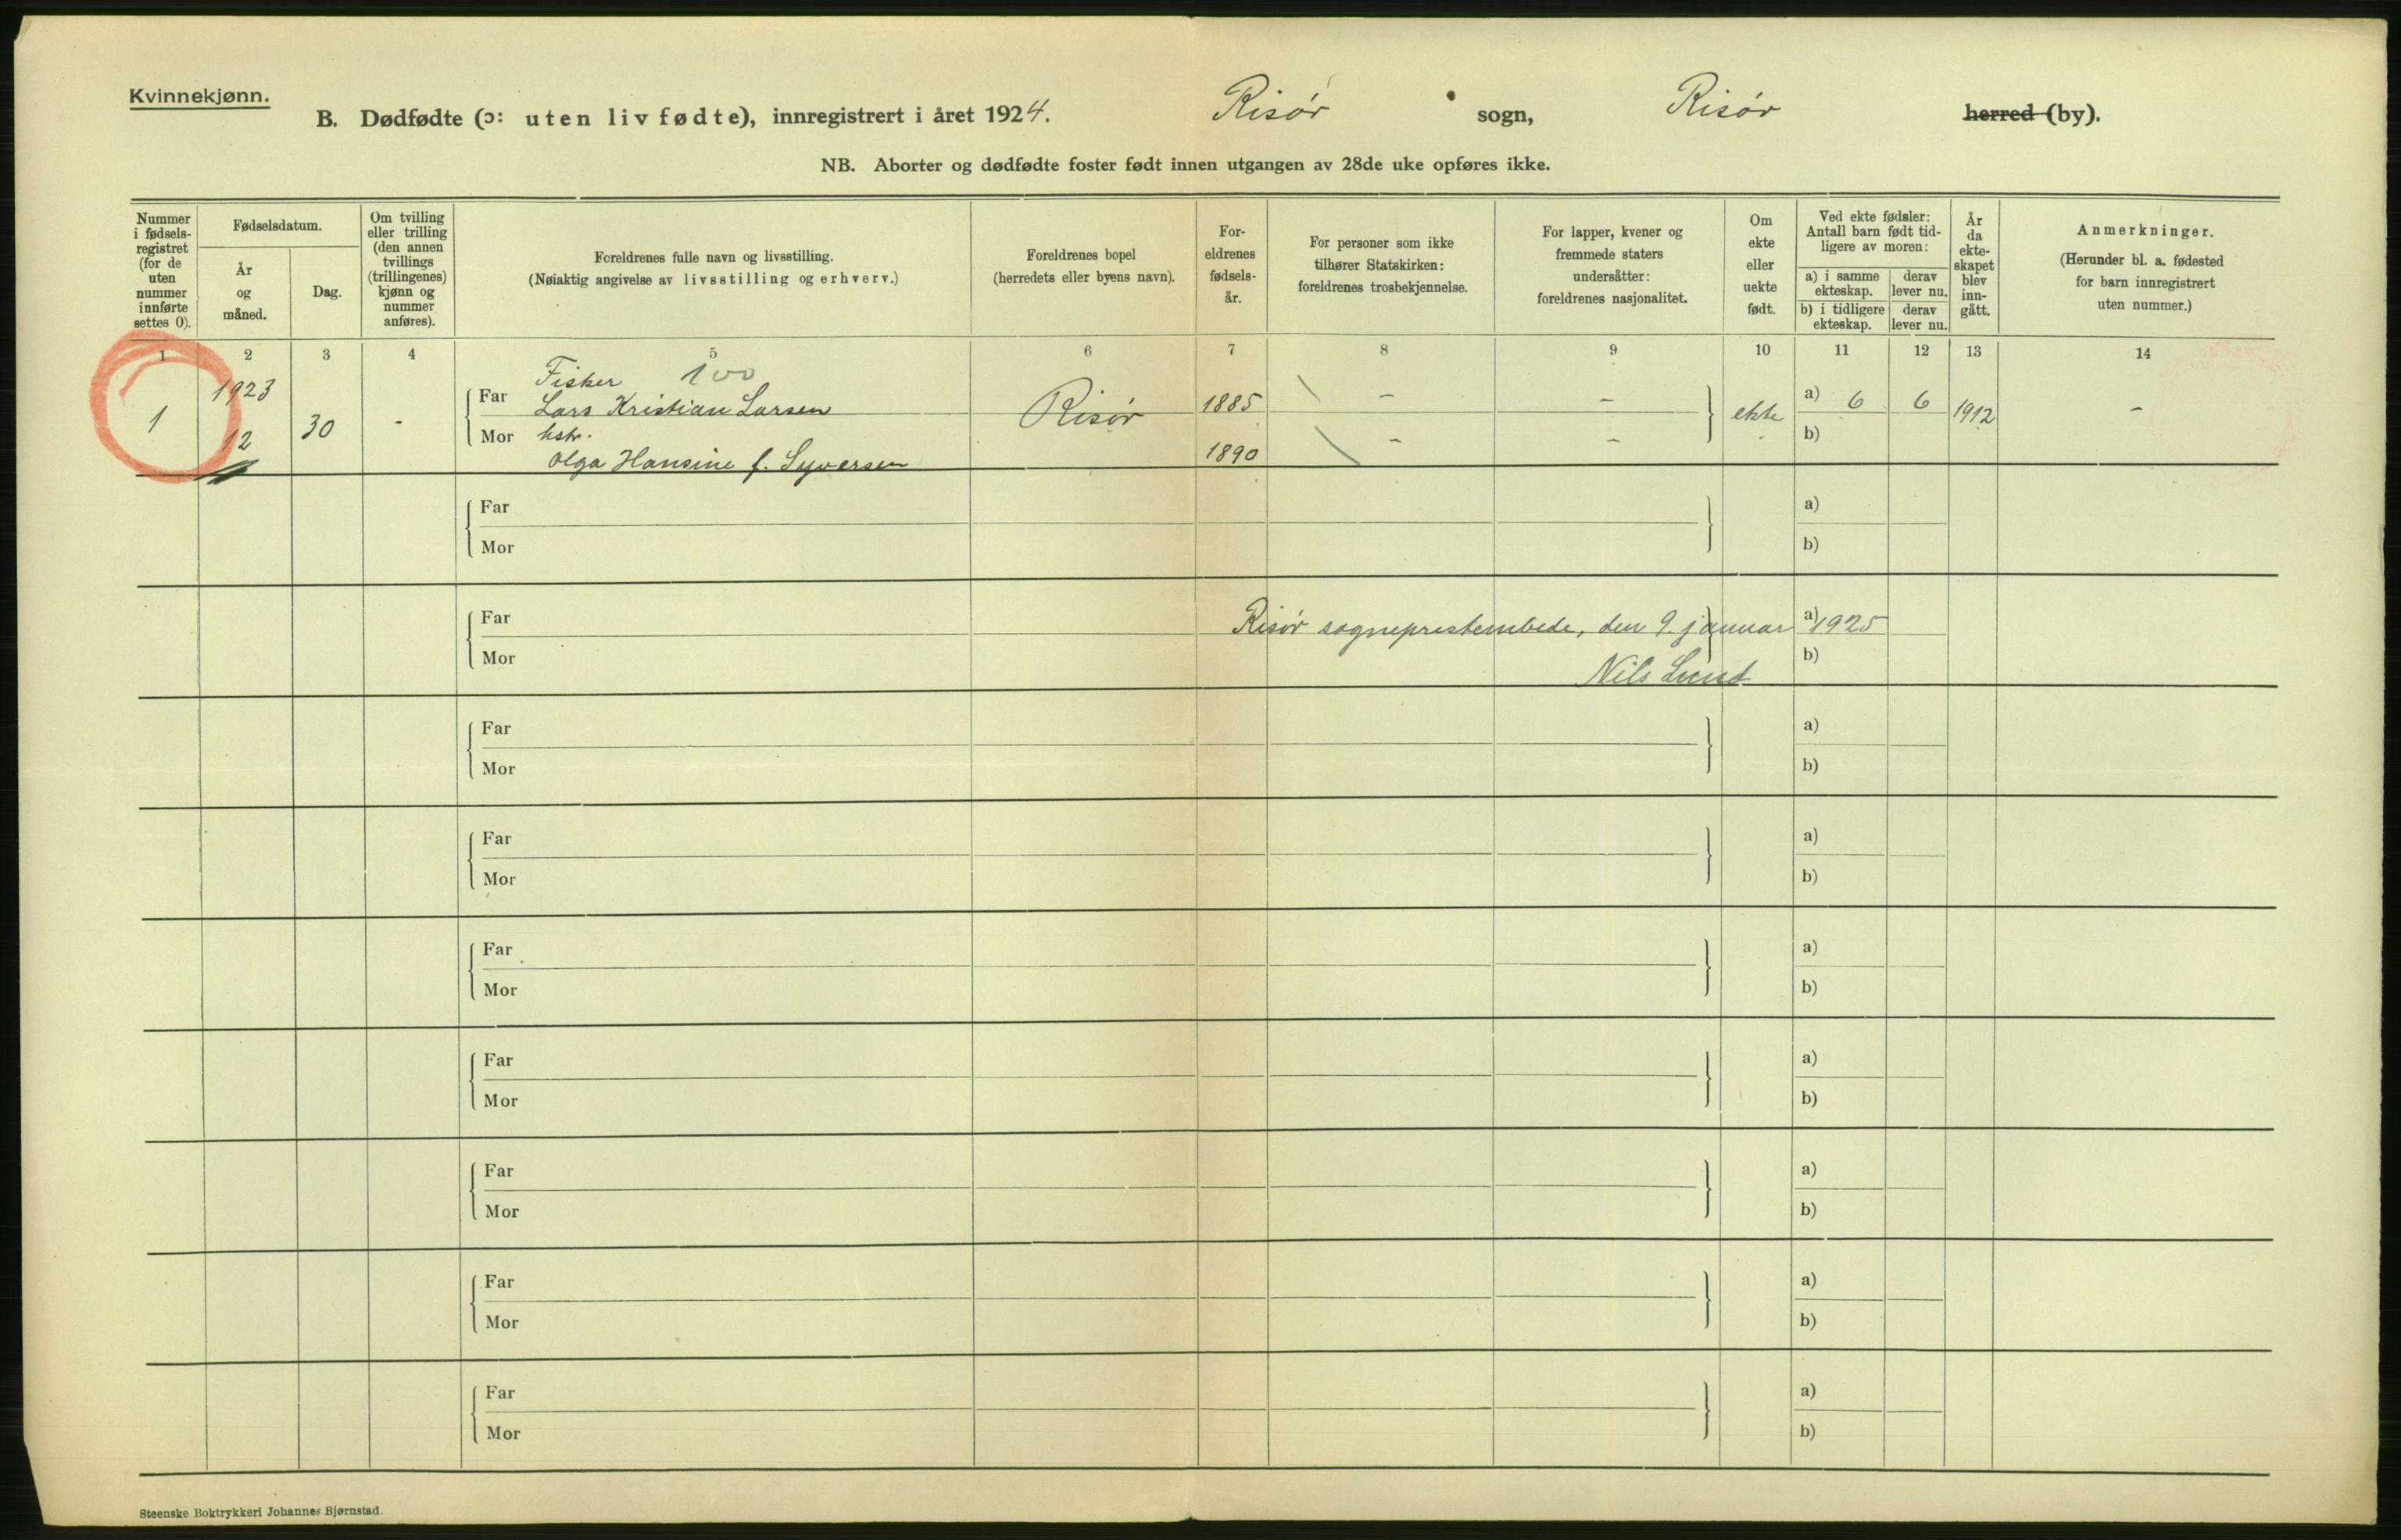 Kvinnekjønn.
B. Dødfødte (ɔ: uten liv fødte), innregistrert i året 1924. Risør sogn, Risør herred (by).
NB. Aborter og dødfødte foster født innen utgangen av 28de uke opføres ikke.
Nummer
i fødsels-
registret
(for de
uten
nummer
innførte
settes 0).
Fødselsdatum.
År
og
måned.
Dag.
Om tvilling
eller trilling
(den annen
tvillings
(trillingenes)
kjønn og
nummer
anføres).
Foreldrenes fulle navn og livsstilling.
(Nøiaktig angivelse av livsstilling og erhverv.)
Foreldrenes bopel
(herredets eller byens navn).
For-
eldrenes
fødsels-
år.
For personer som ikke
tilhører Statskirken:
foreldrenes trosbekjennelse.
For lapper, kvener og
fremmede staters
undersåtter:
foreldrenes nasjonalitet.
Om
ekte
eller
uekte
født.
Ved ekte fødsler:
Antall barn født tid-
ligere av moren:
a) i samme
ekteskap.
derav
lever nu.
b) i tidligere
ekteskap.
derav
lever nu.
År
da
ekte-
skapet
blev
inn-
gått.
Anmerkninger.
(Herunder bl. a. fødested
for barn innregistrert
uten nummer.)
1 2 3 4 5 6 7 8 9 10 11 12 13 14
Fisker 100
1 1923 12 30 - Far Lars Kristian Larsen Risør 1885 - - ekte a) 6 6 1912 -
Mor hstr. b)
Olga Hansine f. Syversen 1890 - -
Far a)
Mor b)
Far Risør sogneprestembede, den 9. januar a) 1925
Mor Nils Lund b)
Far a)
Mor b)
Far a)
Mor b)
Far a)
Mor b)
Far a)
Mor b)
Far a)
Mor b)
Far a)
Mor b)
Far a)
Mor b)
Steenske Boktrykkeri Johannes Bjørnstad.